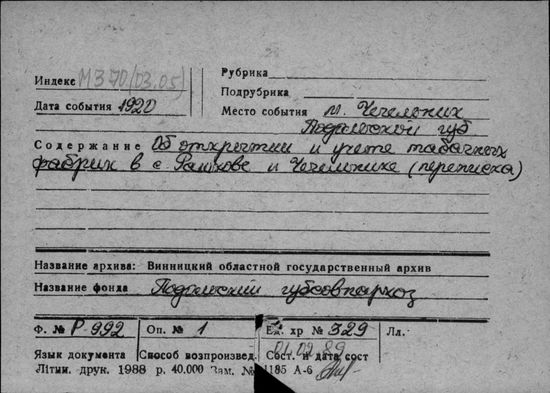 Рубрика
Индекс М370(03.05)
Подрубрика
Дата события 1920
Место события м. Чечельник
Подольской губ
Содержание Об открытии и учете табачных
фабрик в с. Рашкове и Чечельнике (переписка)
Название архива: Винницкий областной государственный архив
Название фонда Подольский губсовнархоз
Ф. № Р-992 Оп. № 1 Ед. хр № 329 Лл.
01.02.89
Язык документа Способ возпроизвед. Сост. и дата сост
Літин. друк. 1988 р. 40.000 Зам. № 1185 А-6